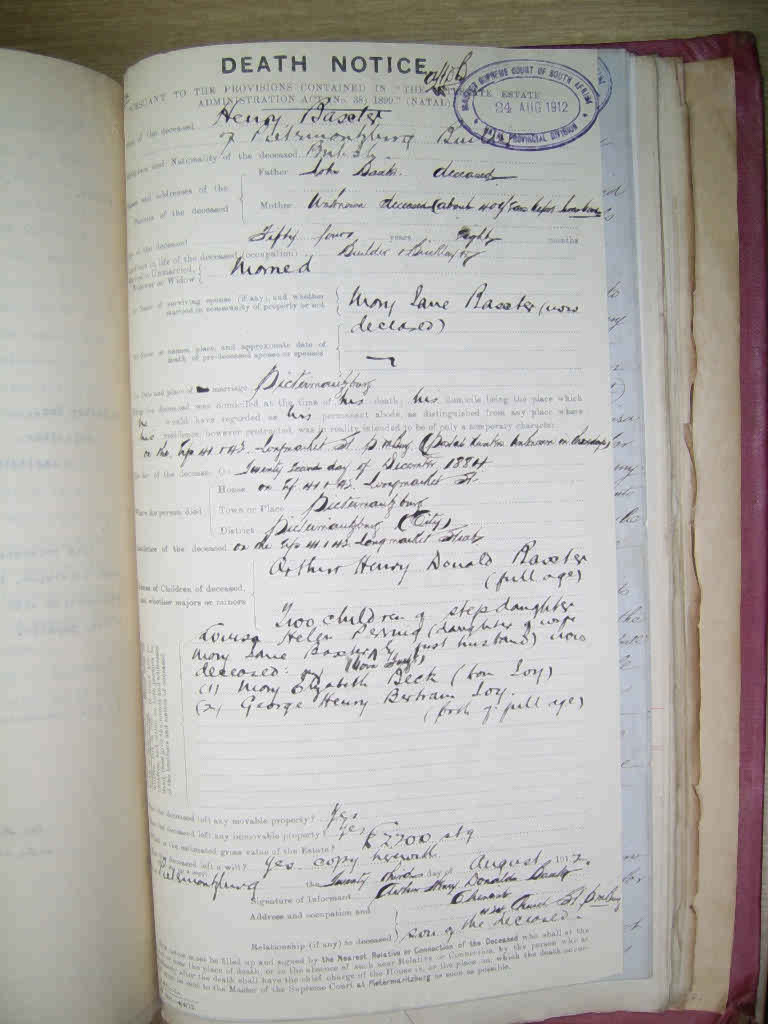 DEATH NOTICE
PURSUANT TO THE PROVISIONS CONTAINED IN "THE ESTATE
ADMINISTRATION ACT (No. 38) 1899." (NATAL)
MASTER SUPREME COURT OF SOUTH AFRICA
24 AUG 1912
NATAL PROVINCIAL DIVISION
of the deceased Henry Baxter
of Pietermaritzburg
Nationality of the deceased British
Names and addresses of the Parents of the deceased
Father John deceased
Mother Unknown deceased (about 40 years
of the deceased Fifty four years eight months
in life of the deceased (occupation) Builder
Unmarried, or Widow Married
of surviving spouse (if any), and whether married in community of property or not
Mary Jane Baxter (now
deceased)
names, place, and approximate date of death of pre-deceased spouse or spouses
Date and place of marriage. Pietermaritzburg
deceased was domiciled at the time of his death; his domicile being the place which
he would have regarded as his permanent abode, as distinguished from any place where
his residence, however protracted, was in reality intended to be of only a temporary character.
on the 41 & 43 Longmarket St. PMBurg
of the deceased On Twenty second day of December 1884
Where the person died
House on 41 & 43 Longmarket St.
Town or Place Pietermaritzburg
District Pietermaritzburg (City)
of the deceased on the 41 & 43 Longmarket Street
Names of Children of deceased, and whether majors or minors
Arthur Henry Donald Baxter
(full age)
Two children of step daughter
Louisa Helen (daughter of wife
Mary Jane Baxter by first husband) now
deceased:
(1) Mary Elizabeth Beck (born Loy)
(2) George Henry Bertram Loy.
(both of full age)
deceased left any movable property? Yes
deceased left any immovable property? Yes
is the estimated gross value of the Estate? £2200 stg
deceased left a will? Yes copy herewith
Pietermaritzburg the Twenty third day of August 1912.
Signature of Informant Arthur Henry Donald Baxter
Address and occupation and
Church St. PMBurg
Relationship (if any) to deceased son of the deceased.
notice must be filled up and signed by the Nearest Relative or Connection of the Deceased who shall at the
near the place of death, or in the absence of such near Relative or Connection, by the person who at
after the death shall have the chief charge of the House in, or the place on, which the death occur-
be sent to the Master of the Supreme Court at Pietermaritzburg as soon as possible.